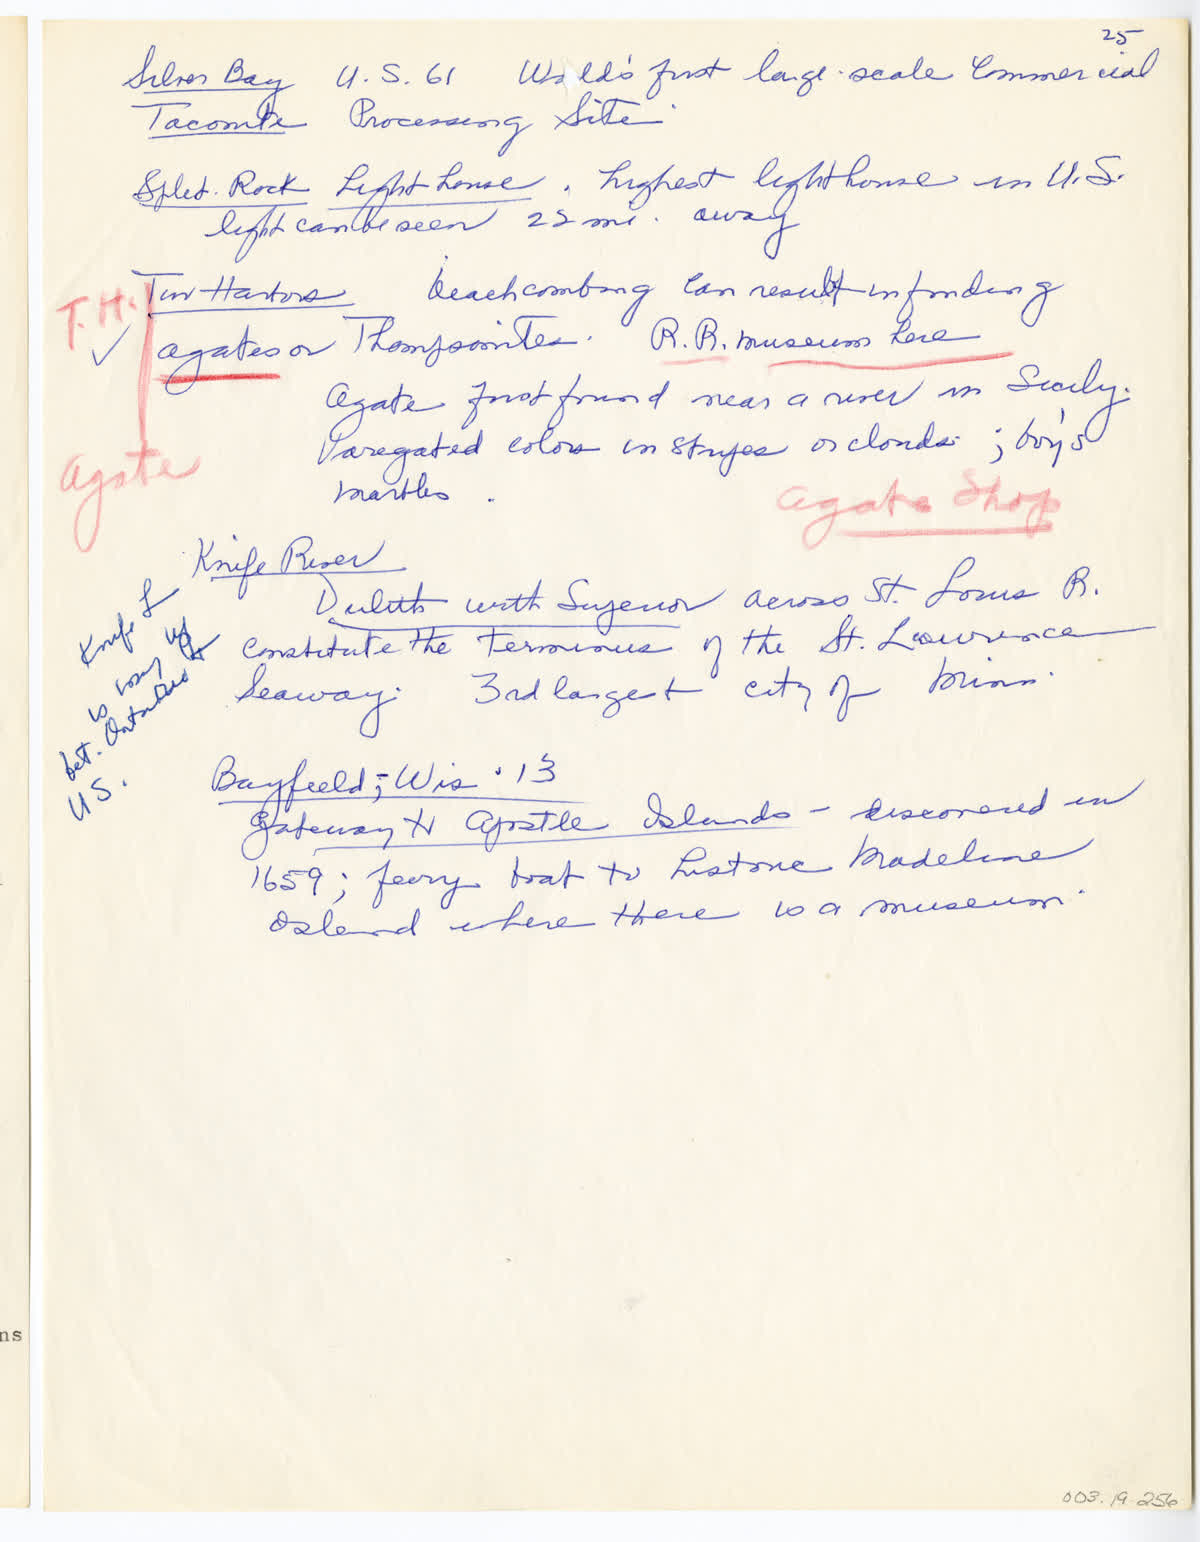 25
Silver Bay U.S. 61 World's first large-scale Commercial
Taconite Processing Site.
Split Rock Light house. highest lighthouse in U.S.
light can be seen 22 mi. away
T.H.
Two Harbors beachcombing can result in finding
✓ agates or Thompsonites. R.R. museum here
Agate first found near a river in Sicily.
Varegated colors in stripes or clouds; boy's
marbles.
Agate
Agate Shop
Knife River
Duluth with Superior across St. Louis R.
constitute the Terminus of the St. Lawrence
Seaway. 3rd largest city of Minn.
Knife L
is way up
bet. Ontario &
U.S.
Bayfield, Wis. 13
Gateway to Apostle Islands - discovered in
1659; ferry boat to historic Madeline
Island where there is a museum.
ns
003.19.256